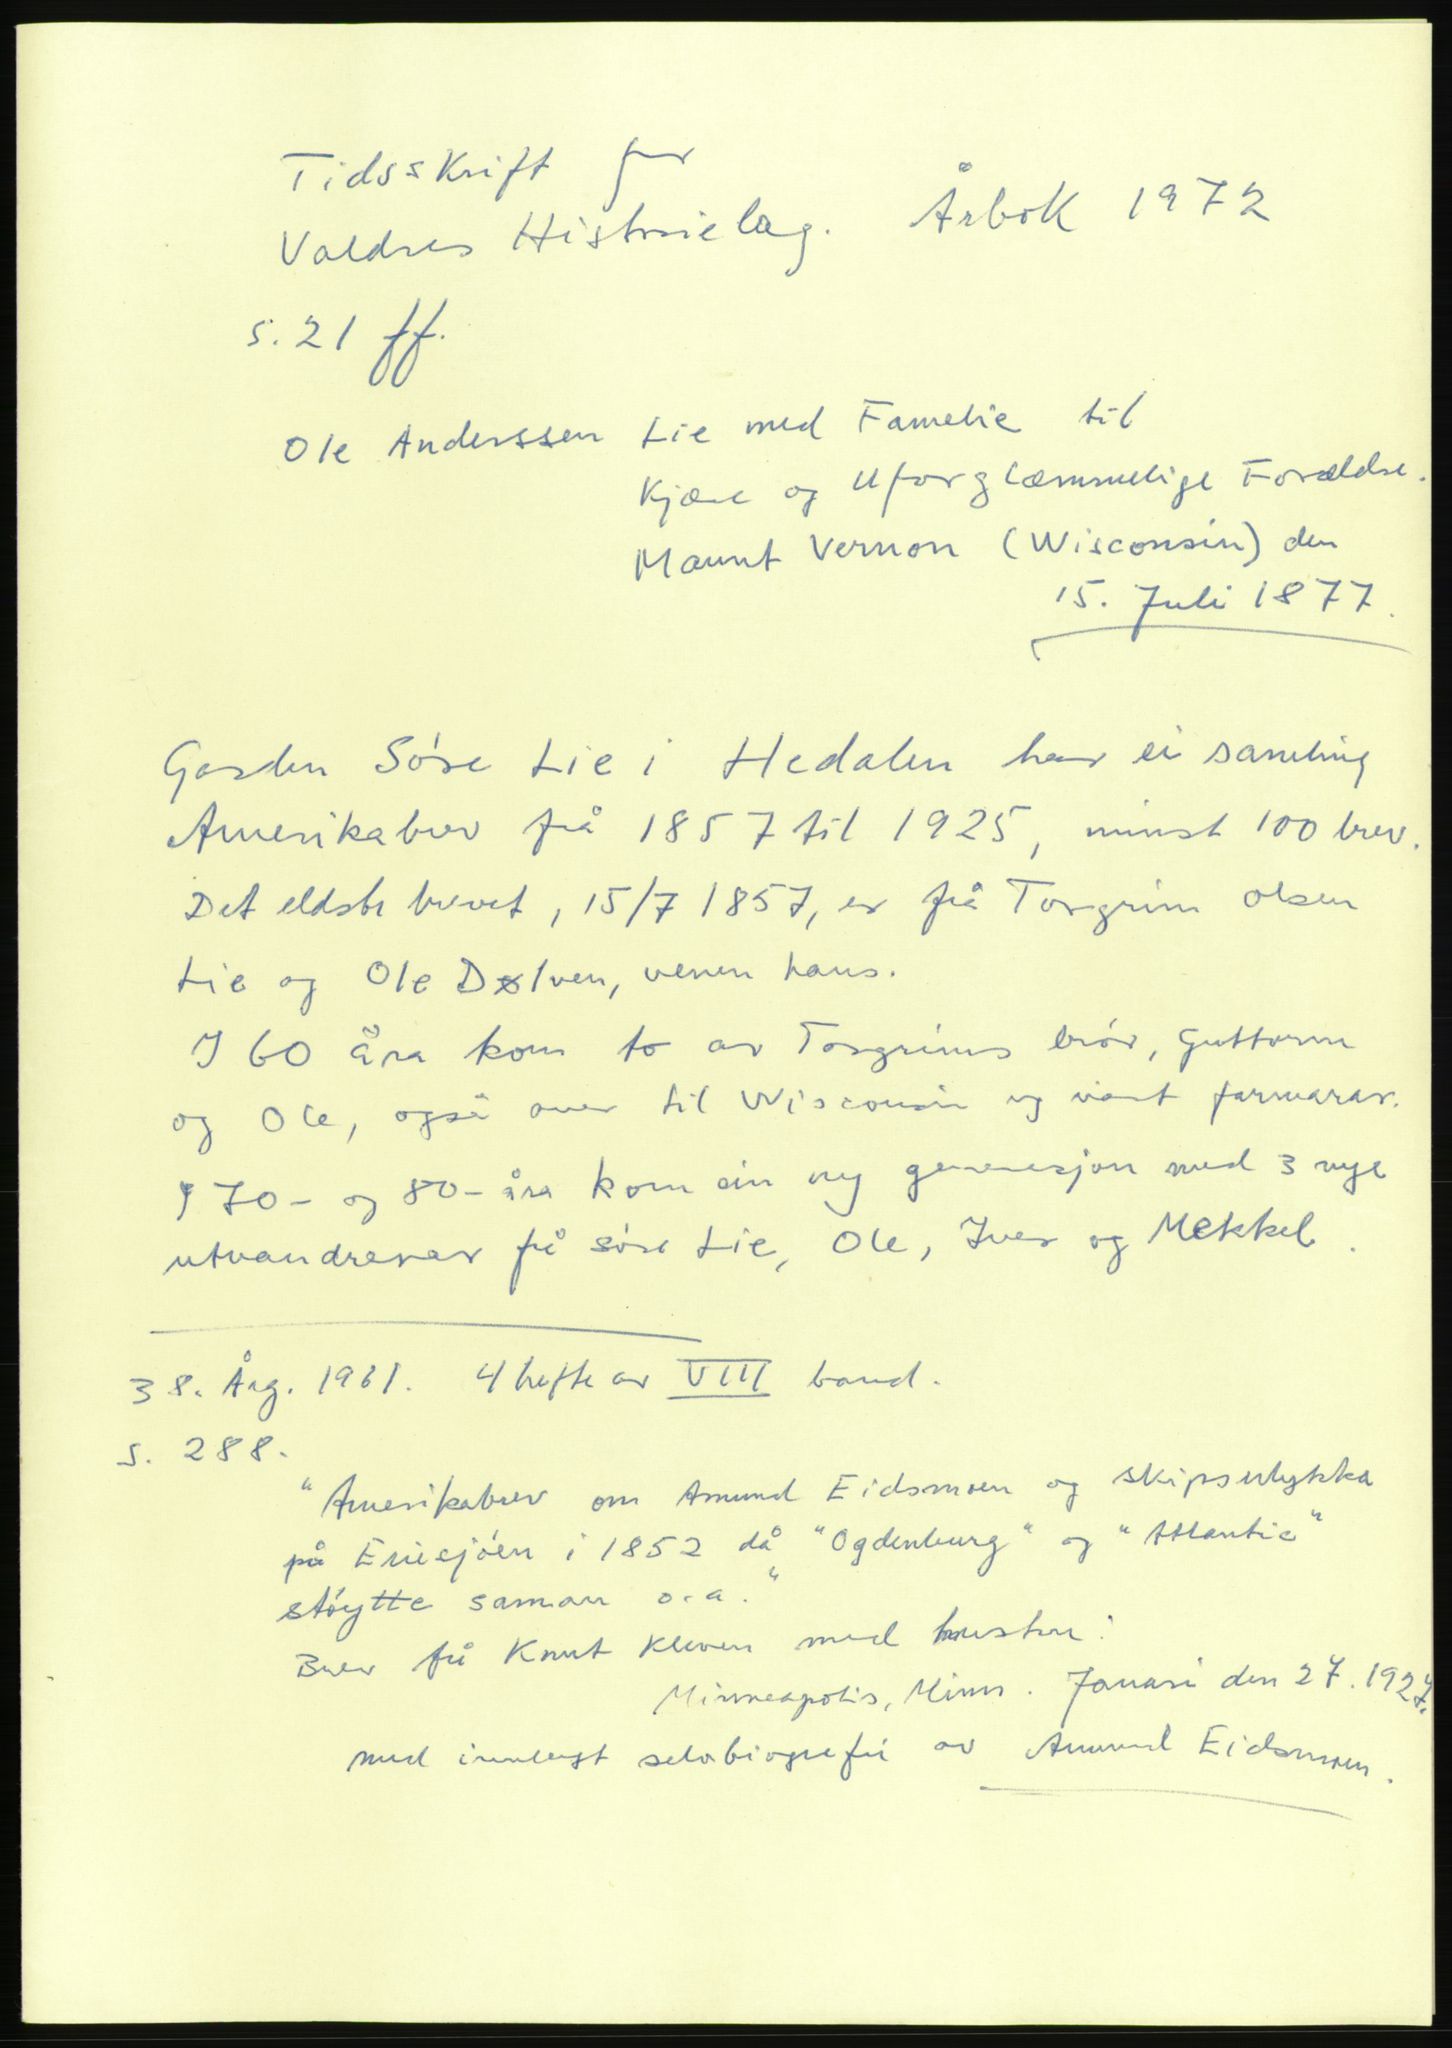 Tidsskrift for
Valdres Historielag. Årbok 1972
s. 21 ff.
Ole Anderssen Lie med Famelie til
Kjære og Uforglæmmelige Forældre.
Maunt Vernon (Wisconsin) den
15. Juli 1877.
Garden Søre Lie i Hedalen har ei samling
Amerikabrev frå 1857 til 1925, minst 100 brev.
Det eldste brevet, 15/7 1857, er frå Torgrim Olsen
Lie og Ole Dølven, venen hans.
I 60 åra kom to av Torgrims brør, Guttorm
og Ole, også over til Wisconsin og vart farmarar.
I 70- og 80-åra kom ein ny generasjon med 3 nye
utvandrarar frå Søre Lie, Ole, Iver og Mekkel.
38. Årg. 1961. 4 hefte av VIII band.
s. 288.
"Amerikabrev om Amund Eidsmoen og skipsulykka
på Eriesjøen i 1852 då "Ogdenburg" og "Atlantic"
støytte saman o.a."
Brev frå Knut Kleven med hustru:
Minneapolis, Minn. Januari den 27. 1927.
med innlagt selvbiografi av Amund Eidsmoen.